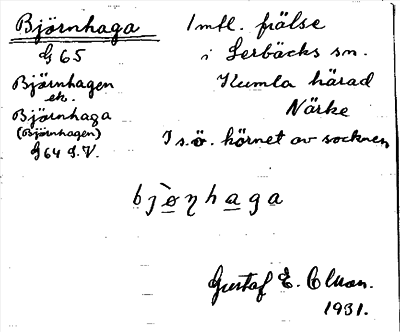 Björnhaga
G 65
Björnhagen
ek.
Björnhaga
(Björnhagen)
G 64 S.V.
1 mtl. frälse
i Lerbäcks sn.
Kumla härad
Närke
I s.ö. hörnet av socknen
bjøŋhaga
Gustaf E.
1931.